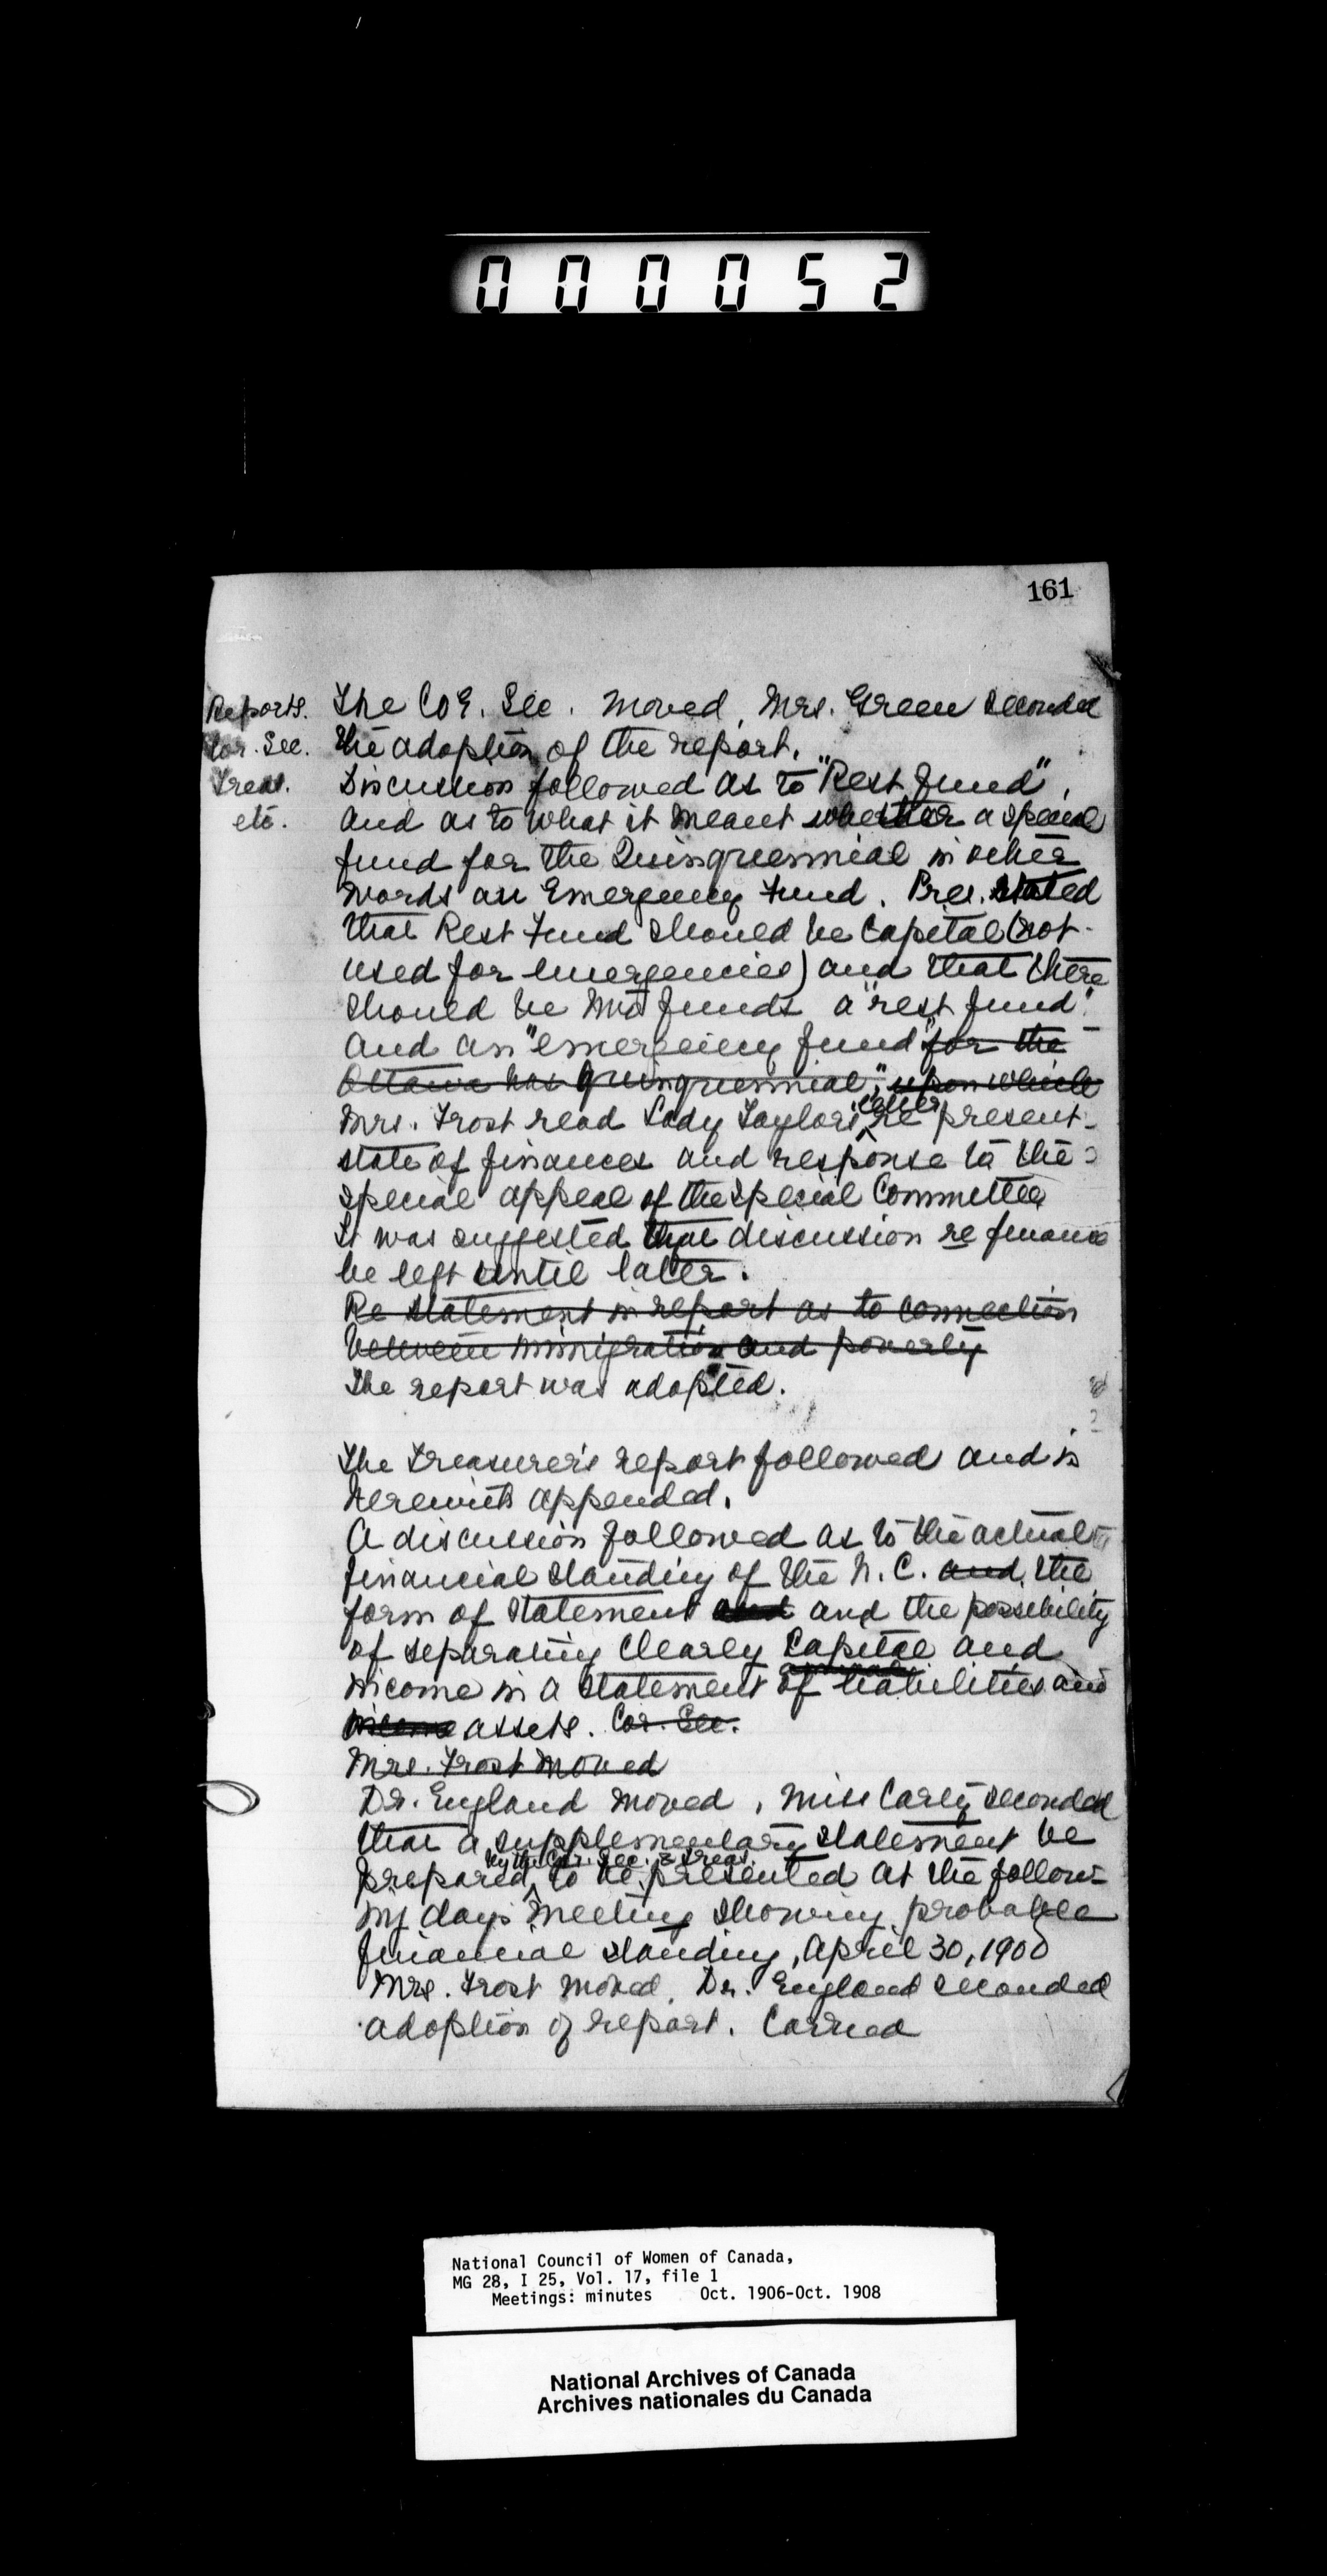 000052
161
Reports.
Cor. Sec.
Treas.
etc.
The Cor. Sec. moved, Mrs. Green seconded
the adoption of the report.
Discussion followed as to "Rest Fund",
and as to what it meant whether a special
fund for the Quinquennial in other
words an Emergency Fund. Pres. stated
that Rest Fund should be Capital (not
used for emergencies) and that there
should be two funds a "rest fund"
and an "emergency fund" for the
Ottawa has quinquennial," upon which
Mrs. Frost read Lady Taylor's letter re present
state of finances and response to the
special appeal of the Special Committee
It was suggested that discussion re finance
be left until later.
Re statement in report as to connection
between immigration and poverty
The report was adopted.
The Treasurer's report followed and is
herewith appended.
A discussion followed as to the actual
financial standing of the N. C. and the
form of statement and and the possibility
of separating clearly Capital and
income in a statement of liabilities and
income assets. Cor. Sec.
Mrs. Frost moved
Dr. England moved, Miss Carty seconded
that a supplementary statement be
prepared by the Cor. Sec. & Treas. to be presented at the follow-
ing days meeting showing probable
financial standing, April 30, 190
Mrs. Frost moved, Dr. England seconded
adoption of report. Carried
National Council of Women of Canada,
MG 28, I 25, Vol. 17, file 1
Meetings: minutes Oct. 1906-Oct. 1908
National Archives of Canada
Archives nationales du Canada